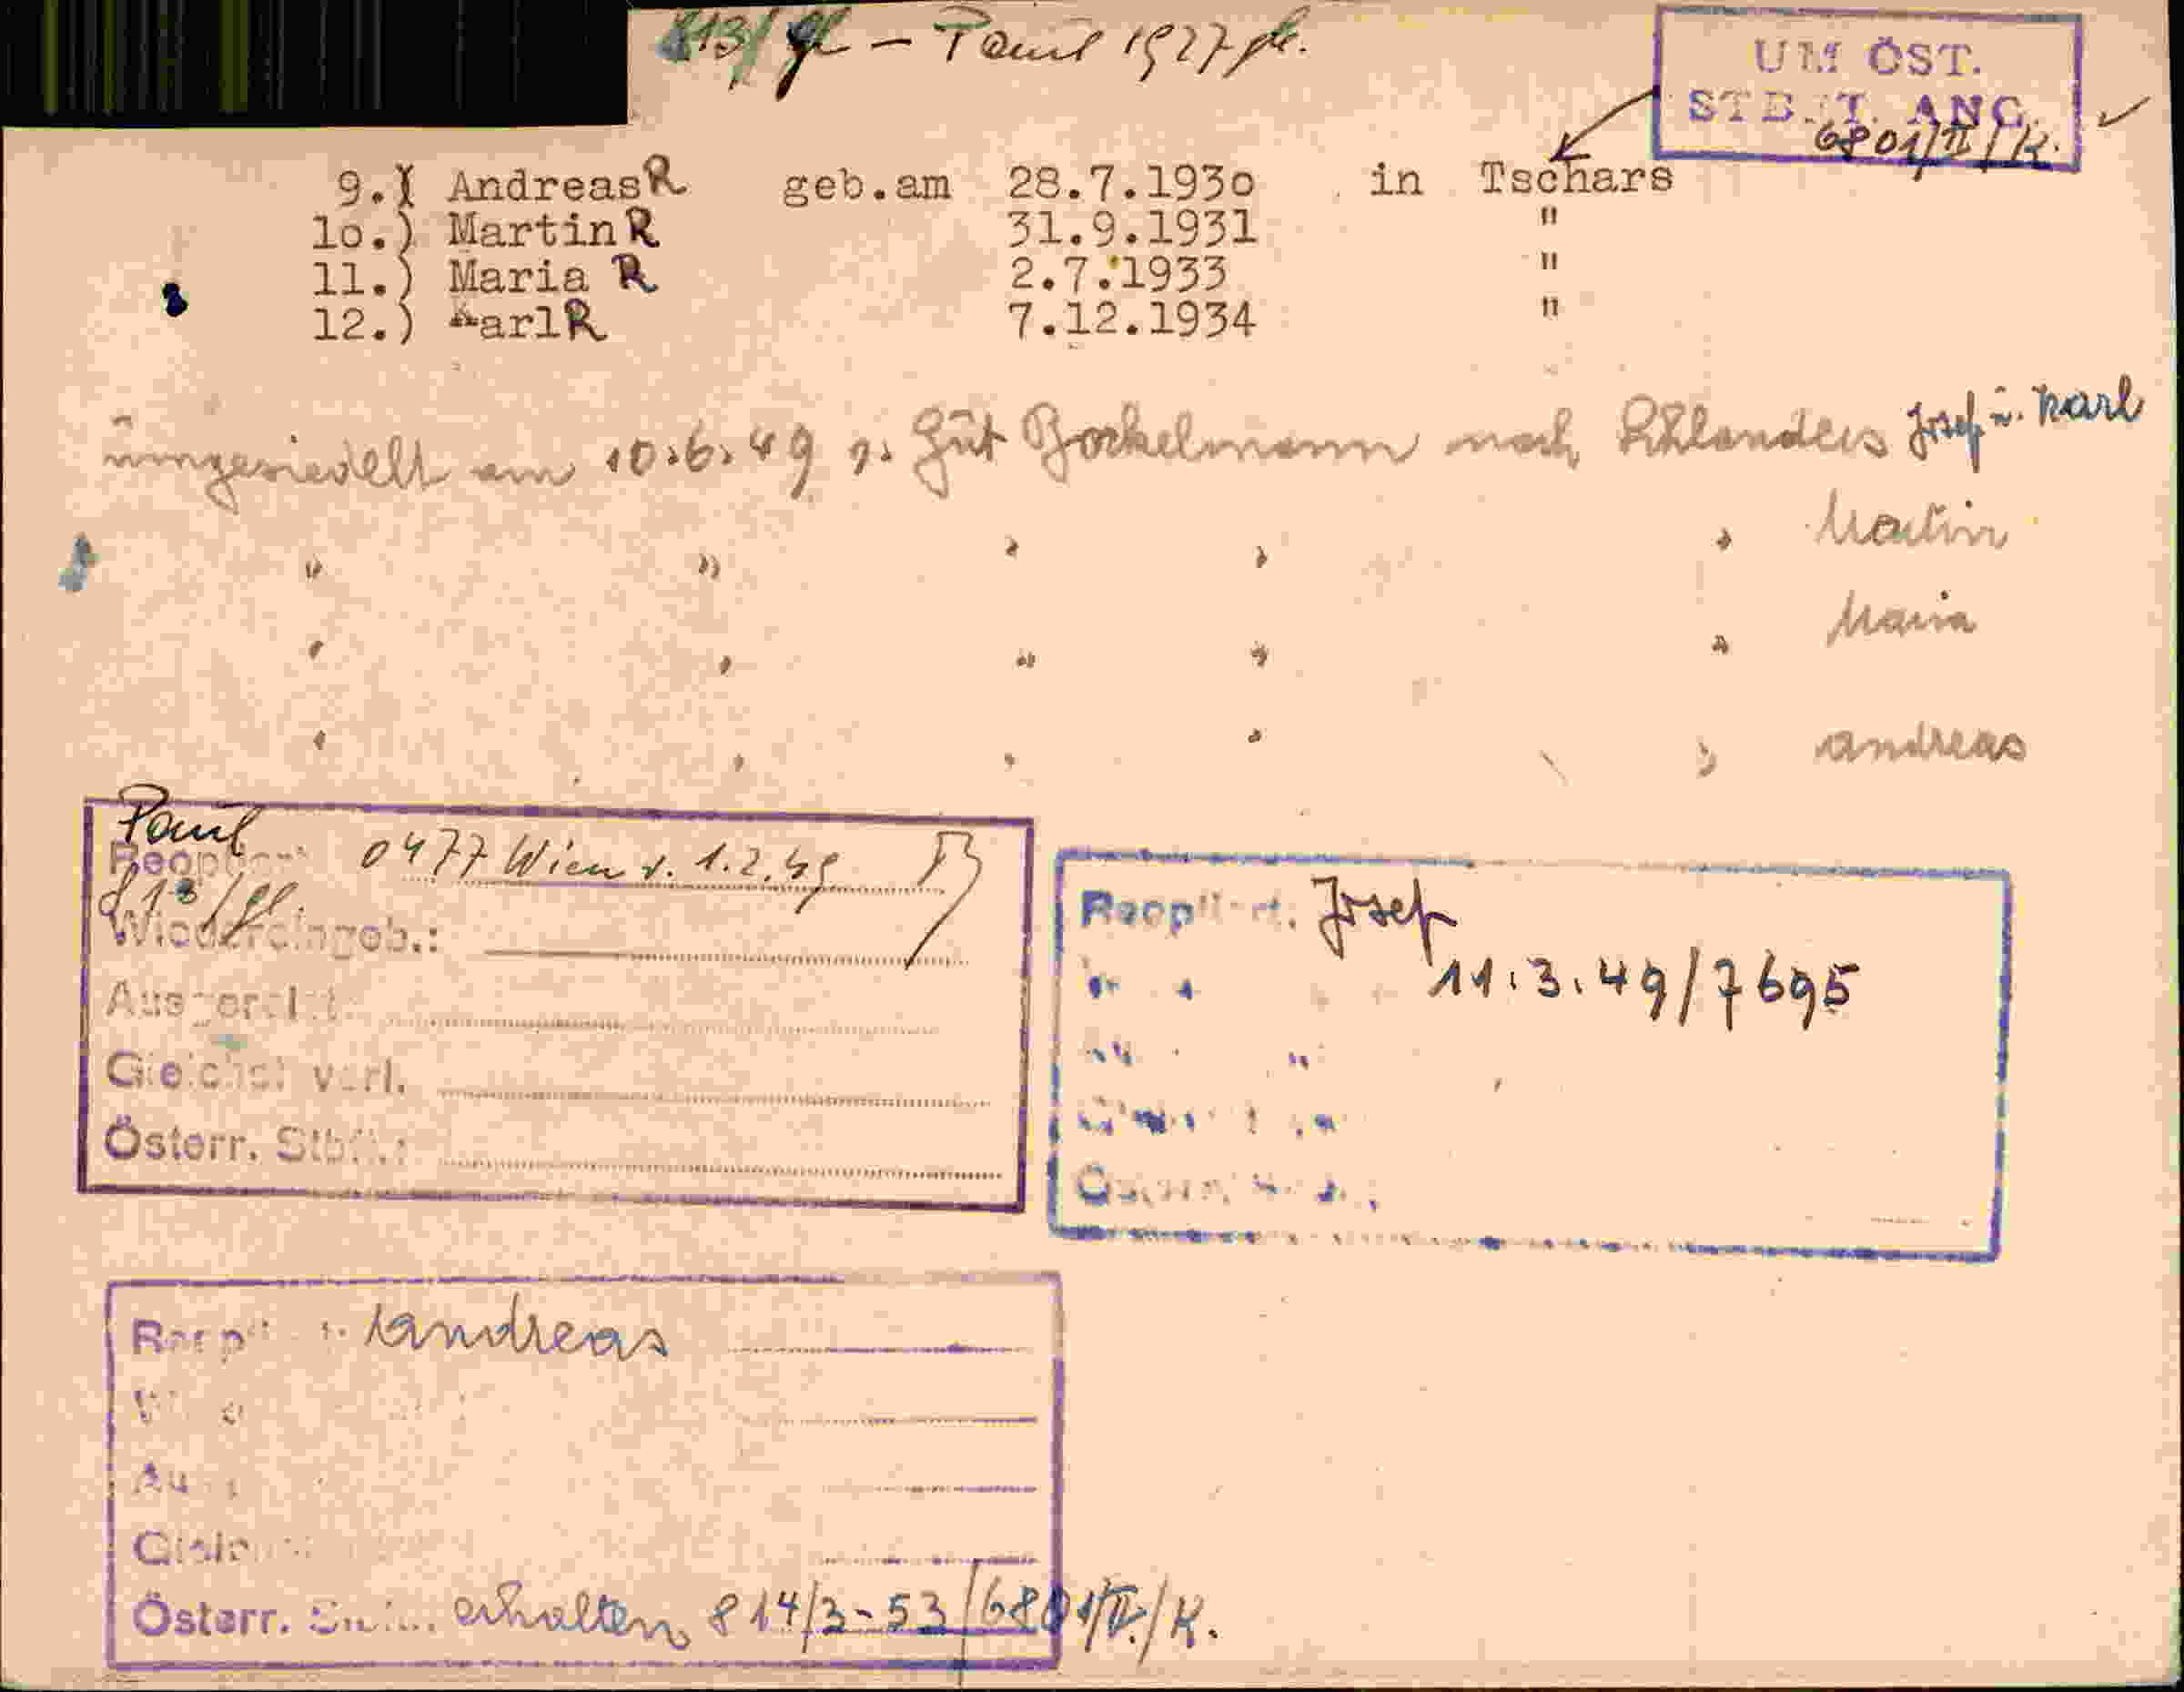 813/gl – Paul 1927 gl.
UM ÖST.
STB.T. ANG.
6801/II/K.
9.) Andreas R geb.am 28.7.1930 in Tschars
10.) Martin R 31.9.1931 "
11.) Maria R 2.7.1933 "
12.) Karl R 7.12.1934 "
umgesiedelt am 10.6.49 Gut Bockelmann nach Schlanders Josef u. Karl
" " " " " Martin
" " " " " Maria
" " " " " Andreas
Paul
Reoptiert 0477 Wien v. 1.2.49
813/gl.
Wiedereingeb.:
Ausgereist:
Gleichst verl.
Österr. Stb.:
Reoptiert. Josef
11.3.49/7695
Andreas
Österr. erhalten 814/3-53/6801/II./K.